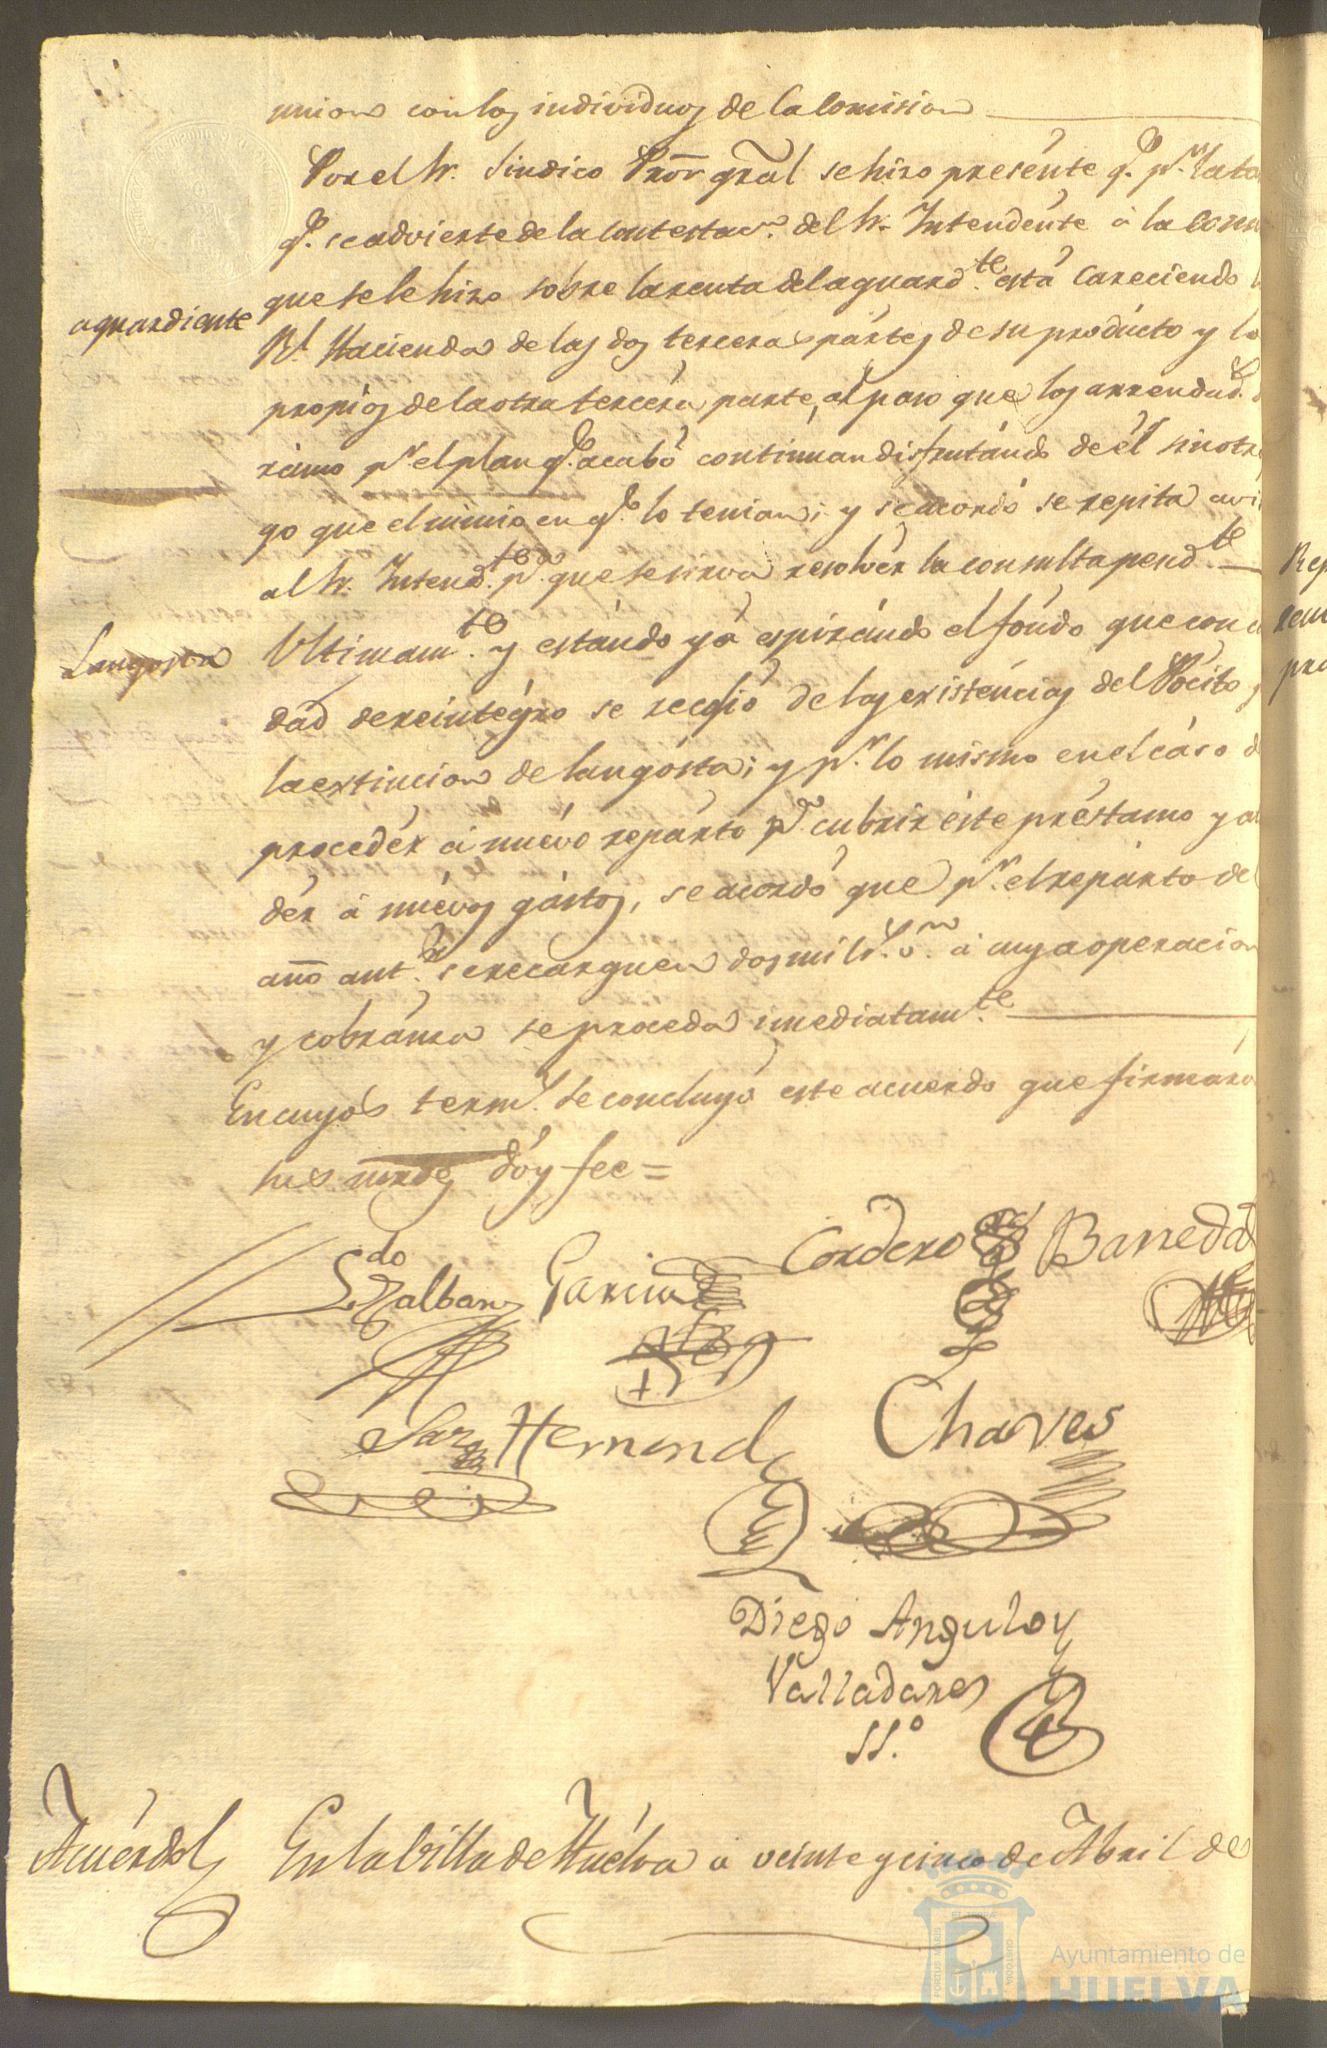 union con los individuos de la Comision
Por el Sr. Sindico Pror gral se hizo presente q.e p.r la ta
q.e se advierte de la contestac.n del Sr. Intendente á la con
que se le hizo sobre la renta del aguard.te está careciendo
aguardiente
Rl. Hacienda de las dos terceras partes de su producto y lo
propios de la otra tercera parte, al paso que los arrendad.s
ramo p.r el plan q.e acabó continuan disfrutando de él sin otr
go que el mismo en q.e lo tenian; y se acordó se repita avi
al Sr. Intend.te p.a que se sirva resolver la consulta pend.te
Langosta
Ultimam.te y estándo yá espirándo el fóndo que con ca
dad de reintégro se recojió de las existéncias del Pósito p
la extincion de langósta; y p.r lo mismo en el cáso d
procedér á nuévo repárto p.a cubrir éste préstamo y a
dér á nuévos gástos, se acordó que p.r el repárto del
año ant.r se recarguen dos mil r.s v.n á cuya operacion
y cobránza se proceda imediatam.te
En cuyos term.s se concluyó este acuerdo que firmaro
sus mrdes dóy fee =
L.do Zalbans Garcia Cordero Barreda
Saz Hernnd.s Chaves
Diego Angulo y
Valladares
SS.o
Acuérdo
En la Villa de Huélva a veinte y cinco de Abril de
Rep
pre
Ayuntamiento de
HUELVA